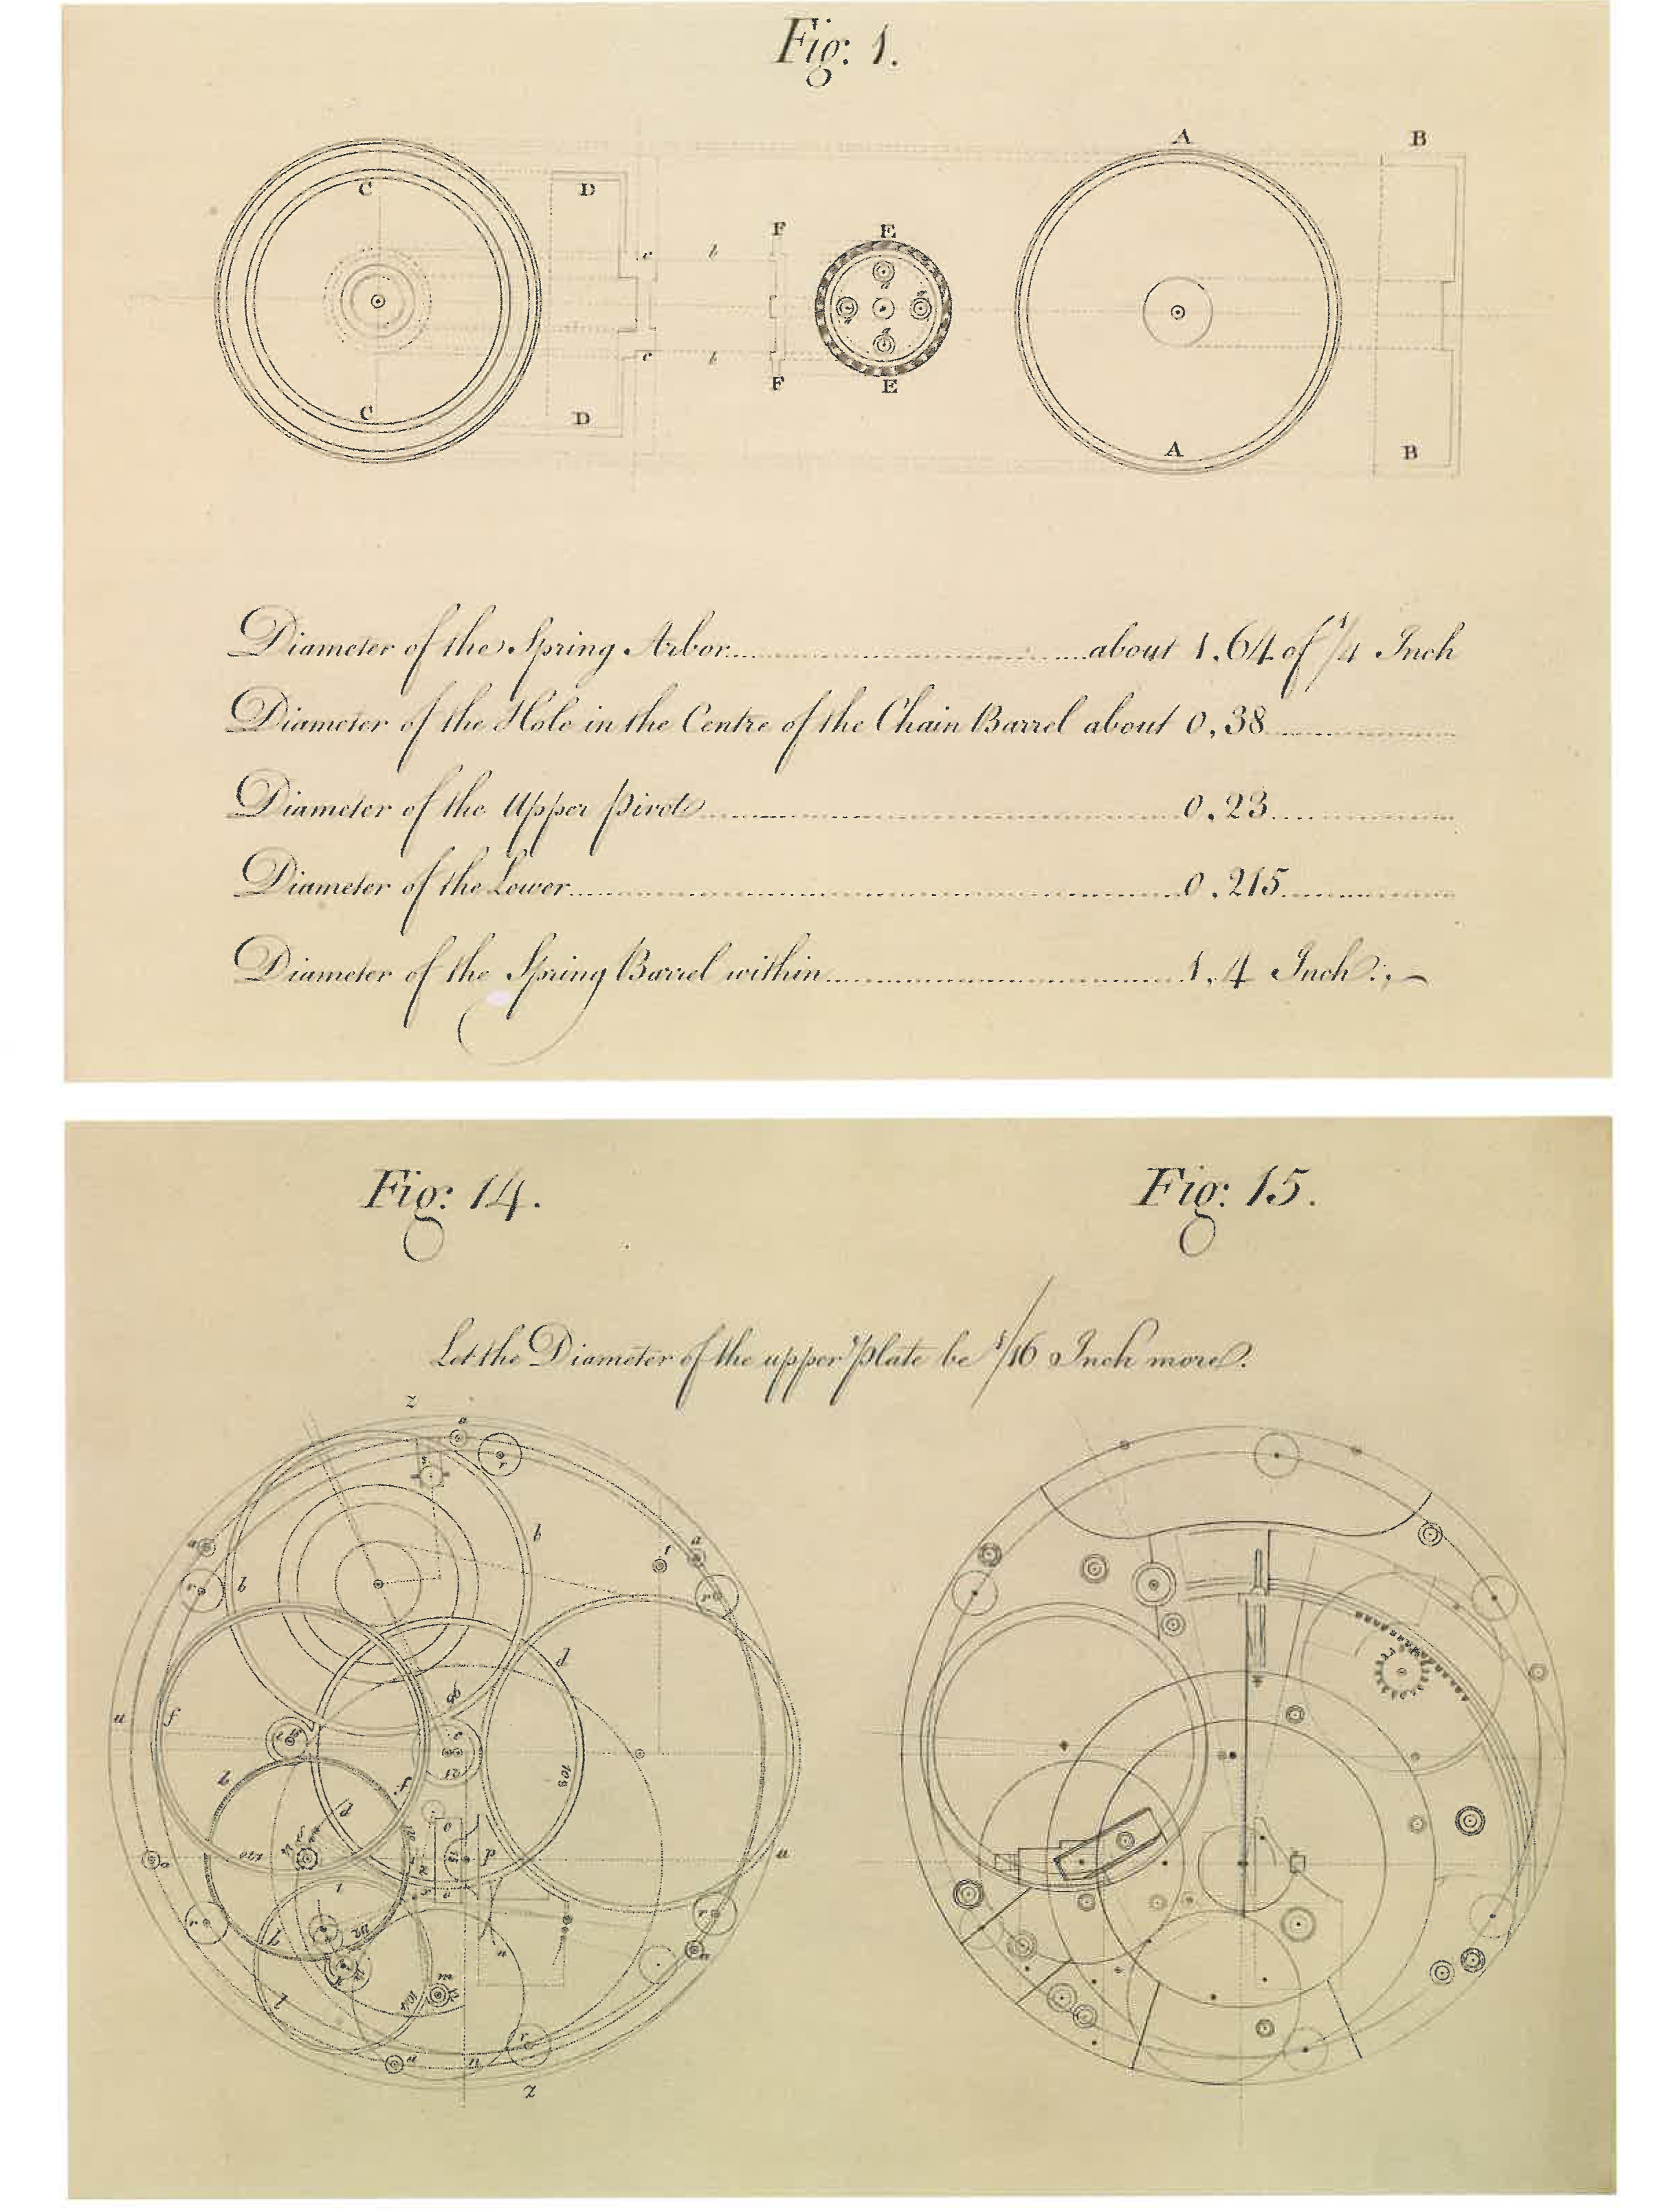 Fig: 1.
A
B
C
D
F
E
c
b
a
a
a
a
c
b
F
E
C
D
A
B
Diameter of the Spring Arbor about 1,64 of 1/4 Inch
Diameter of the Hole in the Centre of the Chain Barrel about 0,38
Diameter of the Upper pivot 0,23
Diameter of the Lower 0,215
Diameter of the Spring Barrel within 1,4 Inch
Fig: 14.
Fig: 15.
Let the Diameter of the upper plate be 1/16 Inch more.
z
a
r
s
b
a
t
a
r
b
r
d
96
u
f
e
12
108
d
120
o
p
a
a
r
r
a
m
r
a
n
z